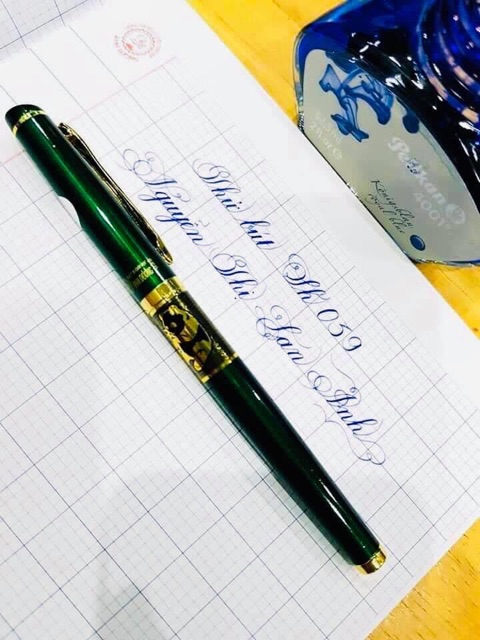 Thử bút Sh 059
Nguyễn Thị Lan Anh
Pelikan
4001
Königsblau
royal blue